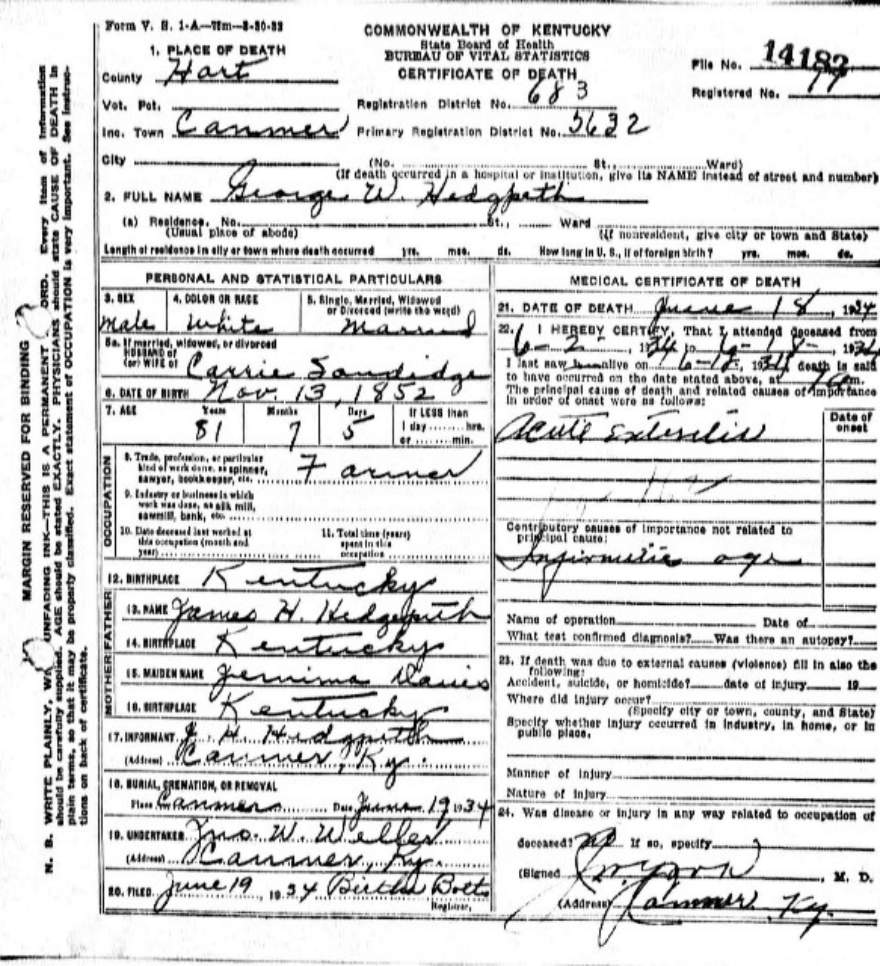 Form V. S. 1-A—75m—8-30-33
COMMONWEALTH OF KENTUCKY
State Board of Health
BUREAU OF VITAL STATISTICS
CERTIFICATE OF DEATH
File No. 14182
Registered No.
1. PLACE OF DEATH
County Hart
Vot. Pct.
Registration District No. 683
Inc. Town Canmer
Primary Registration District No. 5632
City (No. St., Ward)
(If death occurred in a hospital or institution, give its NAME instead of street and number)
2. FULL NAME George W. Hedgpeth
(a) Residence. No. St., Ward
(Usual place of abode) (If nonresident, give city or town and State)
Length of residence in city or town where death occurred yrs. mos. ds. How long in U. S., if of foreign birth? yrs. mos. ds.
PERSONAL AND STATISTICAL PARTICULARS
3. SEX 4. COLOR OR RACE 5. Single, Married, Widowed
or Divorced (write the word)
Male White Married
5a. If married, widowed, or divorced
HUSBAND of
(or) WIFE of Carrie Sandidge
6. DATE OF BIRTH Nov. 13, 1852
7. AGE Years Months Days If LESS than
81 7 5 1 day hrs.
or min.
OCCUPATION
8. Trade, profession, or particular
kind of work done, as spinner,
sawyer, bookkeeper, etc. Farmer
9. Industry or business in which
work was done, as silk mill,
sawmill, bank, etc.
10. Date deceased last worked at
this occupation (month and
year)
11. Total time (years)
spent in this
occupation
12. BIRTHPLACE Kentucky
FATHER
13. NAME James H. Hedgpeth
14. BIRTHPLACE Kentucky
MOTHER
15. MAIDEN NAME Jemima Davis
16. BIRTHPLACE Kentucky
17. INFORMANT J. H. Hedgpeth
(Address) Canmer, Ky.
18. BURIAL, CREMATION, OR REMOVAL
Place Canmer Date June 19 1934
19. UNDERTAKER Jno. W. Weller
(Address) Canmer, Ky.
20. FILED June 19, 1934 Birtha Botts
Registrar.
MEDICAL CERTIFICATE OF DEATH
21. DATE OF DEATH June 18, 1934
22. I HEREBY CERTIFY, That I attended deceased from
6-2-, 1934 to 6-18-, 1934
I last saw him alive on 6-18, 1934, death is said
to have occurred on the date stated above, at m.
The principal cause of death and related causes of importance
in order of onset were as follows:
Date of
onset
Acute
Contributory causes of importance not related to
principal cause:
age
Name of operation Date of
What test confirmed diagnosis? Was there an autopsy?
23. If death was due to external causes (violence) fill in also the
following:
Accident, suicide, or homicide? date of injury 19
Where did injury occur?
(Specify city or town, county, and State)
Specify whether injury occurred in industry, in home, or in
public place.
Manner of injury
Nature of injury
24. Was disease or injury in any way related to occupation of
deceased? no If so, specify
(Signed , M. D.
(Address) Canmer Ky.
MARGIN RESERVED FOR BINDING
N. B. WRITE PLAINLY, UNFADING INK—THIS IS A PERMANENT Every item of information
should be carefully supplied. AGE should be stated EXACTLY. PHYSICIANS should state CAUSE OF DEATH in
plain terms, so that it may be properly classified. Exact statement of OCCUPATION is very important. See instruc-
tions on back of certificate.